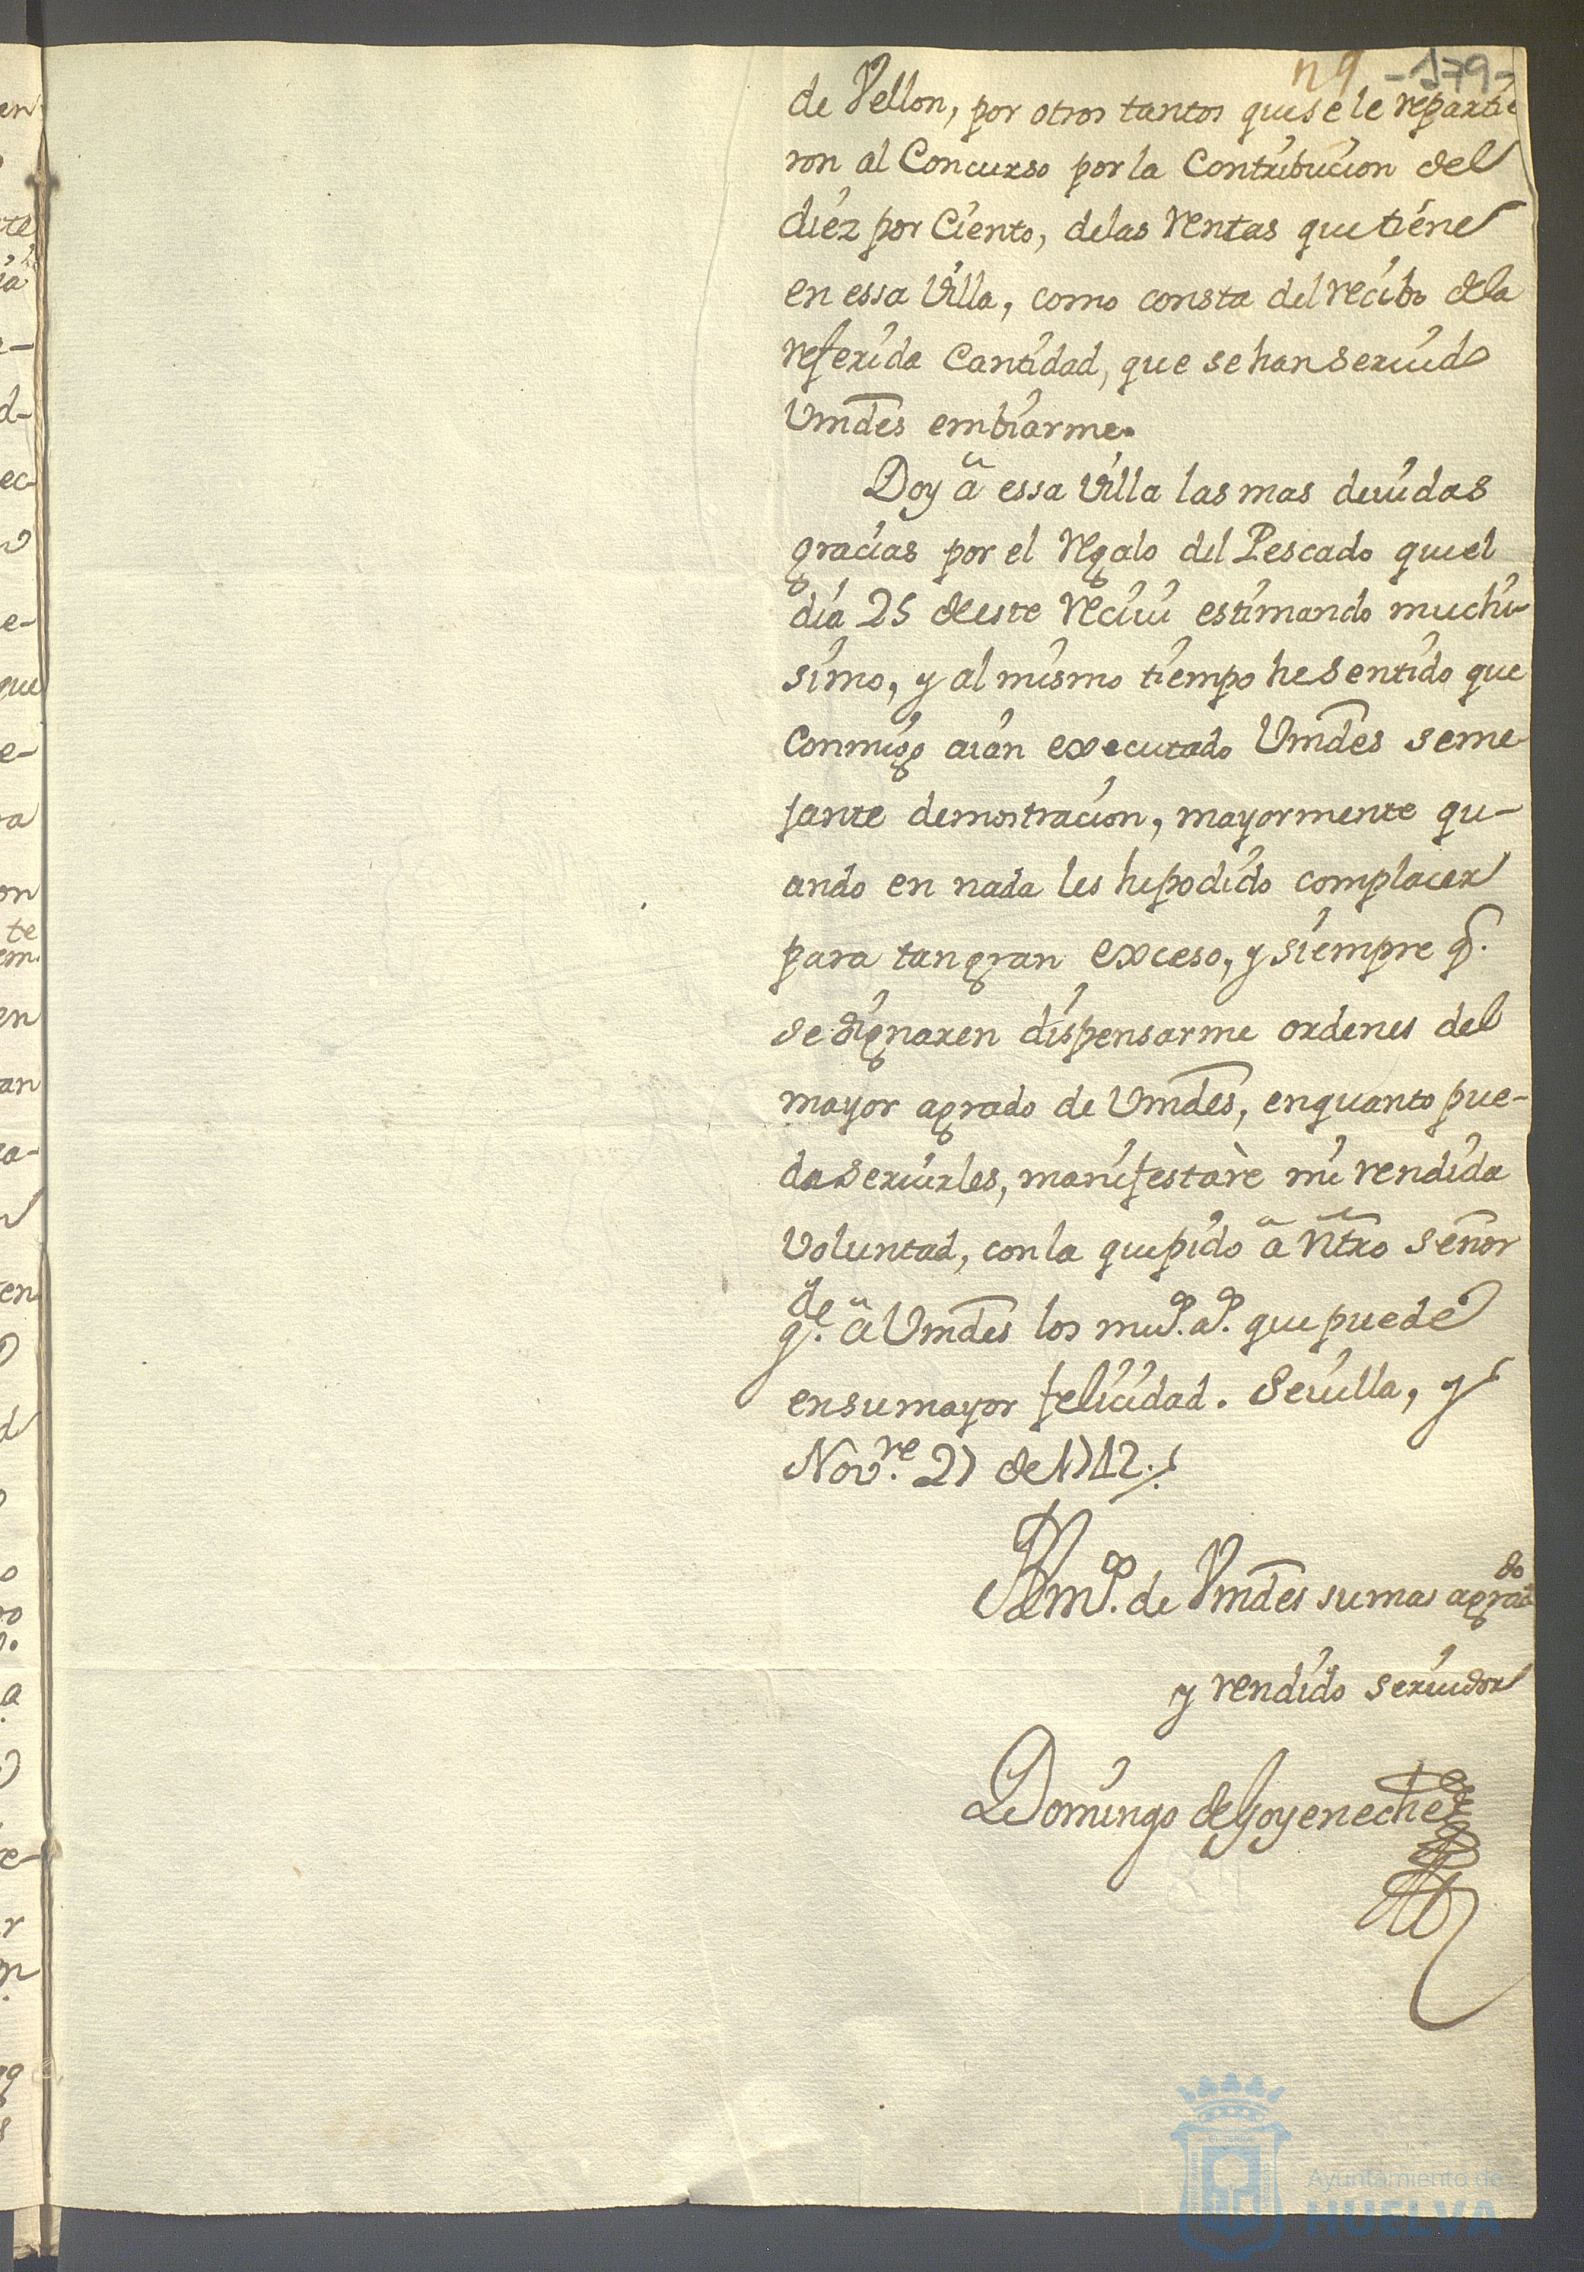 n9 -179-
de Vellon, por otros tantos que se le repartie
ron al Concurso por la Contribucion del
diez por Ciento, de las rentas que tiene
en essa Villa, como consta del recibo de la
referida Cantidad, que se han servido
Vmdes embiarme.
Doy â essa Villa las mas devidas
gracias por el regalo del Pescado que el
dia 25 de este recivi estimando muchi-
simo, y al mismo tiempo he sentido que
conmigo aian executado Vmdes seme
jante demostracion, mayormente qu-
ando en nada les he podido complacer
para tan gran exceso, y siempre q.
se dignaren dispensarme ordenes del
mayor agrado de Vmdes, en quanto pue-
da servirles, manifestarè mi rendida
voluntad, con la que pido â ntro Señor
gde. â Vmdes los ms. as. que puede
en su mayor felicidad. Sevilla, y
Novre. 27 de 1742.
BLms. de Vmdes su mas agrado
y rendido servidor
Domingo de Goyeneche
Ayuntamiento de
HUELVA